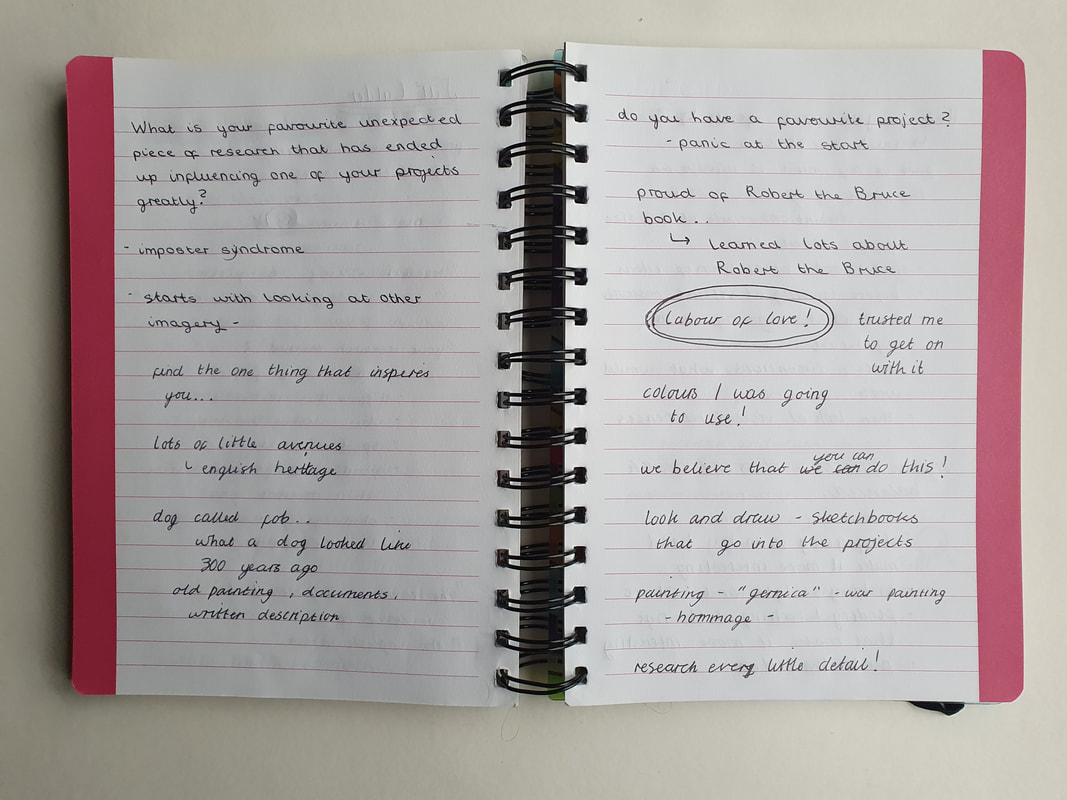 What is your favourite unexpected
piece of research that has ended
up influencing one of your projects
greatly?
- imposter syndrome
- starts with looking at other
imagery -
find the one thing that inspires
you...
lots of little avenues
↳ english heritage
dog called fob..
what a dog looked like
300 years ago
old painting, documents,
written description
do you have a favourite project?
- panic at the start
proud of Robert the Bruce
book..
↳ learned lots about
Robert the Bruce
labour of love! trusted me
to get on
with it
colours I was going
to use!
you can
we believe that we can do this!
look and draw - sketchbooks
that go into the projects
painting - "gernica" - war painting
- hommage -
research every little detail!